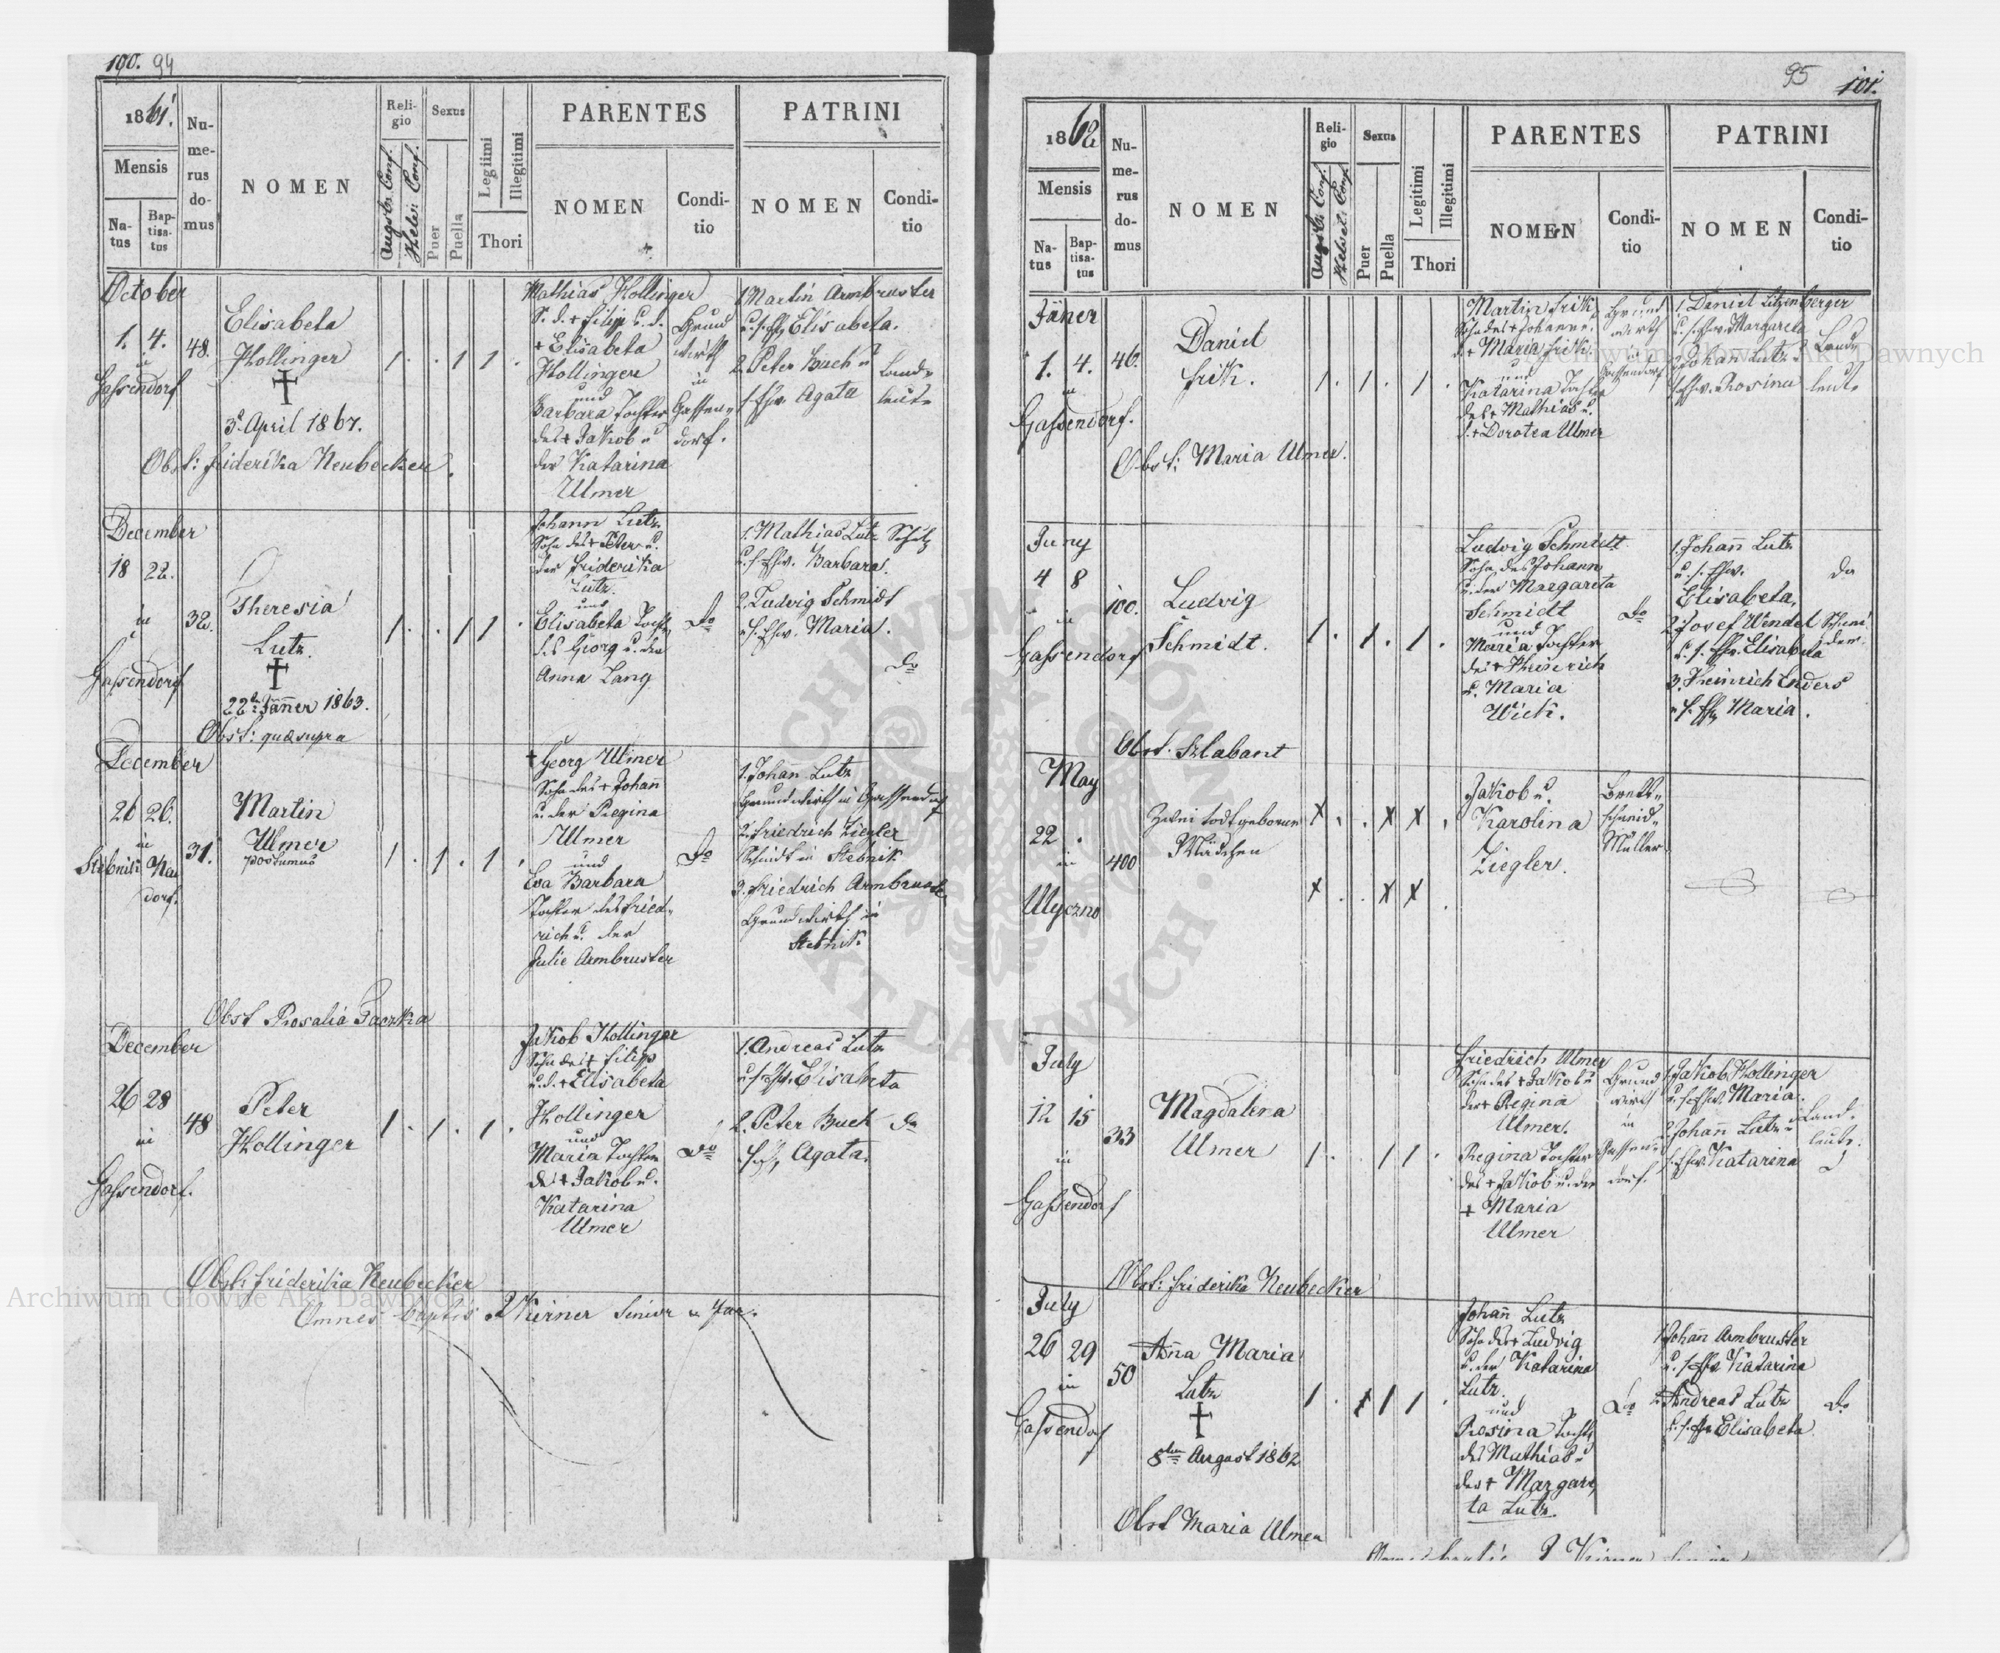 190. 94
1861.
Mensis
Natus
Baptisatus
Numerus domus
NOMEN
Religio
Augsb. Conf.
Helv. Conf.
Sexus
Puer
Puella
Legiimi
Illegitimi
Thori
PARENTES
NOMEN
Conditio
PATRINI
NOMEN
Conditio
October
1. 4.
in
Gassendorf
48.
Elisabeta
Hollinger
†
3. April 1867.
Obst: Friderika Neubecker.
1 . . 1 1 .
Mathias Hollinger
S. d. + Filip u. d.
+ Elisabeta
Hollinger
und
Barbara Tochter
des + Jakob u
der Katarina
Ulmer
Grund
wirth
in
Gassen-
dorf.
1. Martin Armbruster
u. s. Ehw. Elisabeta.
2. Peter Buch u
s. Ehw. Agata
Land-
leute
December
18 22.
in
Gassendorf
32.
Theresia
Lutz.
†
22t. Jänner 1863.
Obst: quae supra
1 . . 1 1 .
Johann Lutz
Sohn des + Peter u.
der Friderika
Lutz.
und
Elisabeta Tocht.
d. Georg u. der
Anna Lang
Do
1. Mathias Lutz
u. s. Ehw. Barbara.
2. Ludvig Schmidt
u s. Ehw. Maria.
Do
December
26 26.
in
Stebnik Neu
dorf.
31.
Martin
Ulmer
postumus
1 . 1 . 1 .
+ Georg Ulmer
Sohn des + Johann
u. der Regina
Ulmer
und
Eva Barbara
Tochter des Fried-
rich u. der
Julie Armbruster
Do
1. Johann Lutz
Grundwirth in Gassendorf
2. Friedrich Ziegler
in Stebnik
3. Friedrich Armbruster
Grundwirth in
Stebnik
Obst Rosalia Gaczka
December
26 28
in
Gassendorf.
48
Peter
Hollinger
1 . 1 . 1 .
Jakob Hollinger
Sohn des + Filipp
u. d. + Elisabeta
Hollinger
und
Maria Tochter
des + Jakob u.
Katarina
Ulmer
Do
1. Andreas Lutz
u. s. Ehw. Elisabeta
2. Peter Buch
s. Ehw. Agata.
Do
Obst: Friderika Neubecker
Omnes baptis. P Kirner Senior u Pfar.
95 101.
1862
Mensis
Natus
Baptisatus
Numerus domus
NOMEN
Religio
Augsb. Conf.
Helvet. Conf.
Sexus
Puer
Puella
Legitimi
Illegitimi
Thori
PARENTES
NOMEN
Conditio
PATRINI
NOMEN
Conditio
Jäner
1. 4.
in
Gassendorf.
46.
Daniel
Frik.
Obst: Maria Ulmer.
1 . 1 . 1 .
Martin Frik
Sohn des + Johann u.
d. + Maria Frik
und
Katarina Tochter
des + Mathias u.
d. + Dorotea Ulmer
Grund
wirth
in
Gassendorf
1. Daniel Litzenberger
u. s. Ehw. Margareta
2. Johan Lutz u
s. Ehw. Rosina
Land-
leute
Juny
4 8
in
Gassendorf
100.
Ludvig
Schmidt.
1 . 1 . 1 .
Ludvig Schmidt
Sohn des Johann
u. der Margareta
Schmidt
und
Maria Tochter
des + Heinrich
u. Maria
Wick.
Do
1. Johann Lutz
u. s. Ehw.
Elisabeta,
2. Josef Wendel
u. s. Ehw. Elisabeta
3. Heinrich Enders
u s. Ehw. Maria.
Do
Schnei-
der
Obst. Szlabant
May
22 .
in
Ulyczno
400
Zwei todtgeborene
Mädchen
X . . X X .
X . . X X .
Jakob u.
Karolina
Ziegler.
Brett-
schneid-
Müller
July
12 15
in
Gassendorf
33
Magdalena
Ulmer
1 . . 1 1 .
Friedrich Ulmer
Sohn des + Jakob u
der + Regina
Ulmer.
Regina Tochter
des + Jakob u. der
+ Maria
Ulmer
Grund
wirth
in
Gassen-
dorf.
1. Jakob Hollinger
u. s. Ehw. Maria.
2. Johann Lutz u
s. Ehw. Katarina
Land-
leute.
Obst: Friderika Neubecker
July
26 29
in
Gassendorf
50
Anna Maria
Lutz
†
8ten August 1862
Obst Maria Ulmer
1 . . 1 1 .
Johann Lutz
Sohn des + Ludvig
u. der Katarina
Lutz.
und
Rosina Tocht.
des Mathias u
der + Margare-
ta Lutz.
Do
1. Johann Armbruster
u. s. Ehw. Katarina
2. Andreas Lutz
u. s. Ehw. Elisabeta
Do
Omnes baptis. P Kirner Senior
Archiwum Główne Akt Dawnych
Archiwum Główne Akt Dawnych
ARCHIWUM GŁÓWNE AKT DAWNYCH